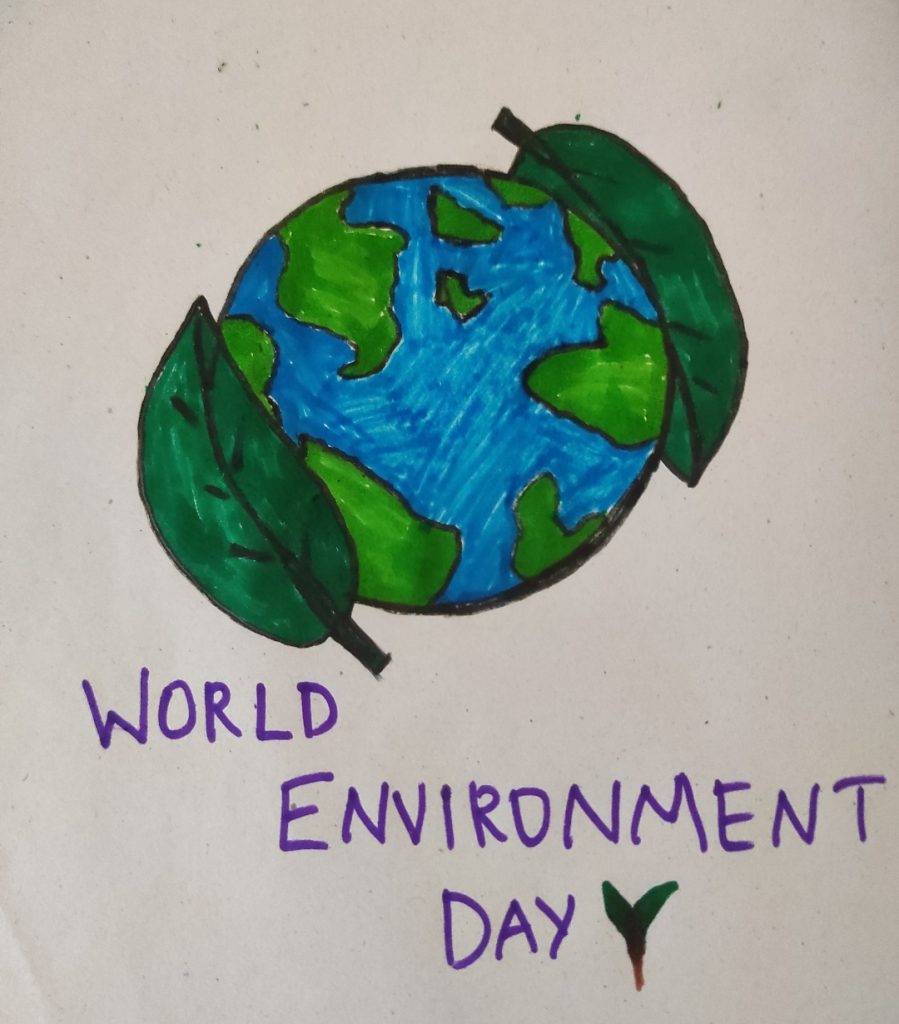 WORLD
ENVIRONMENT
DAY